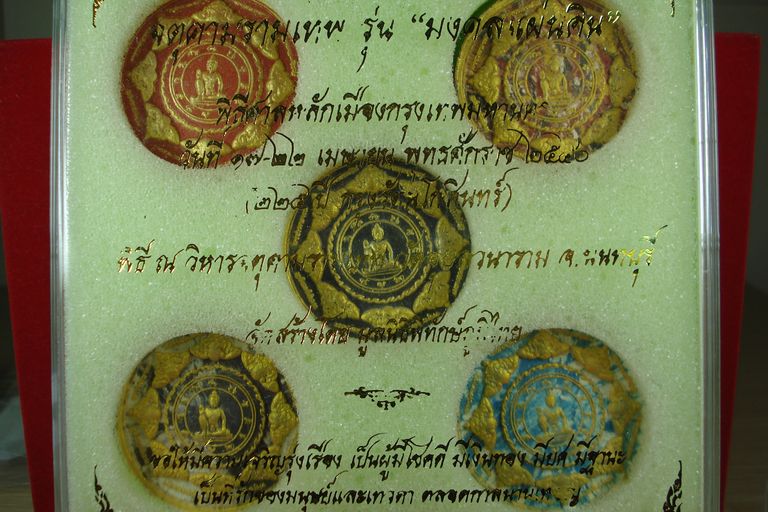 จตุคามรามเทพ รุ่น "มงคลแผ่นดิน"
พิธีศาลหลักเมืองกรุงเทพมหานคร
วันที่ ๑๗-๒๒ เมษายน พุทธศักราช ๒๕๕๐
(๒๒๕ ปี กรุงรัตนโกสินทร์)
พิธี ณ วิหาร จ.นนทบุรี
จัดสร้างโดย มูลนิธิพิทักษ์ภูมิไทย
ขอให้มีความเจริญรุ่งเรือง เป็นผู้มีโชคดี มีเงินทอง มียศ มีฐานะ
เป็นที่รักของมนุษย์และเทวดา ตลอดกาลนานเทอญ